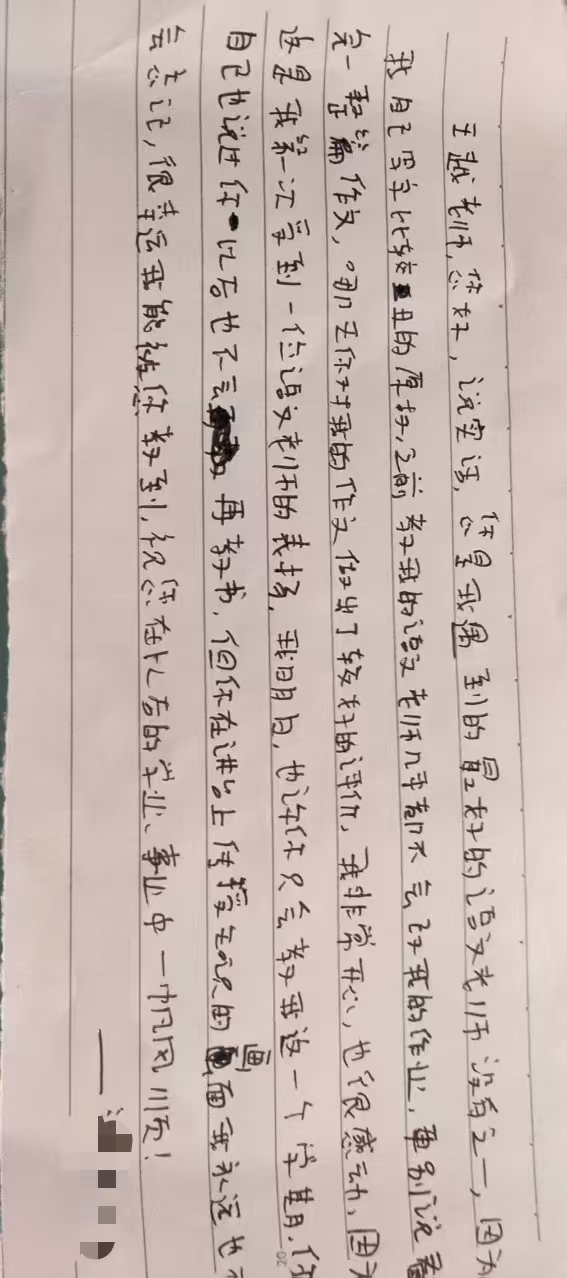 王越老师,您好,说实话,你是我遇到的最好的语文老师没有之一,因为
我自己写字比较丑的原故,之前教我的语文老师几乎都不会改我的作业,更别说看
完一整篇作文,那天你对我的作文做出了较好的评价,我非常开心,也很感动,因为
这是我第一次受到一位语文老师的表扬,我明白,也许你只会教我这一个学期,你
自己也说过你以后也不会再教书,但你在讲台上传授知识的画面我永远也不
会忘记,很幸运我能被你教到,祝您在以后的学业、事业中一帆风顺!